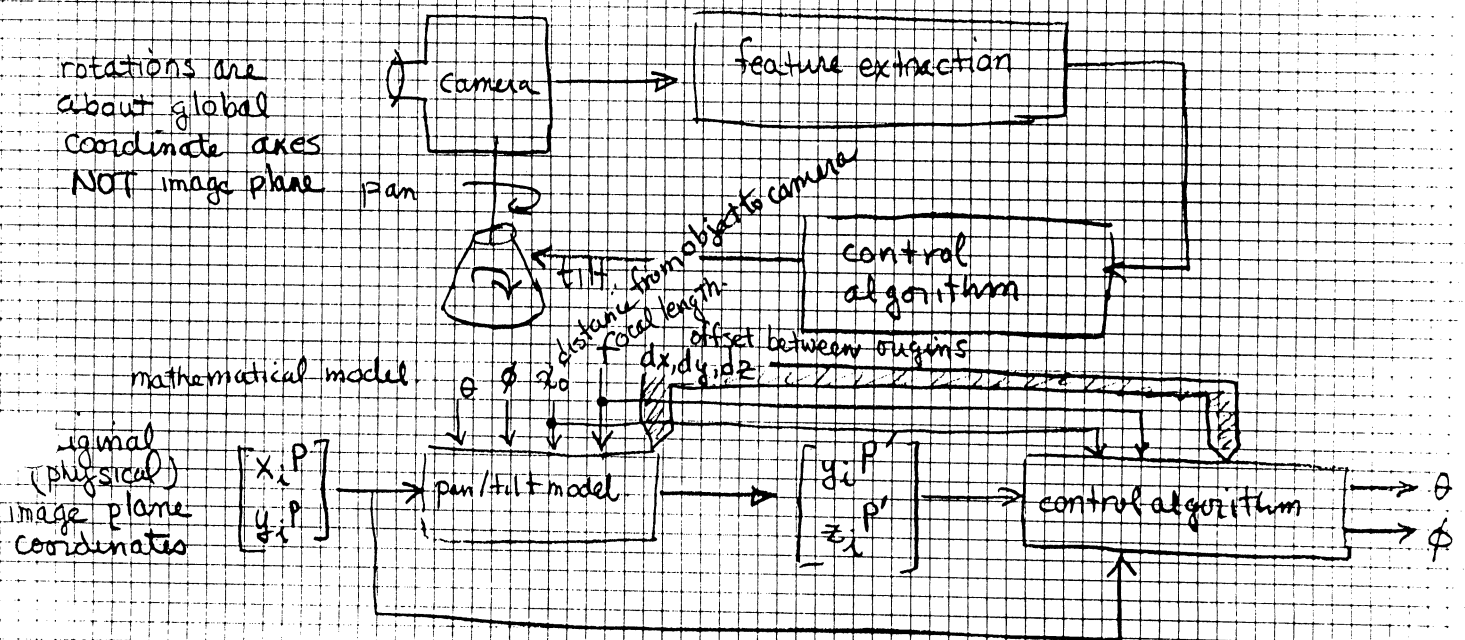 rotations are
about global
coordinate axes
NOT image plane
camera
feature extraction
pan
tilt
control
algorithm
distance from object to camera
focal length
offset between origins
mathematical model.
θ φ x₀ f dx, dy, dz
iginal
(physical)
image plane
coordinates
xᵢᴾ
yᵢᴾ
pan/tilt model
yᵢᴾ′
zᵢᴾ′
control algorithm
θ
φ